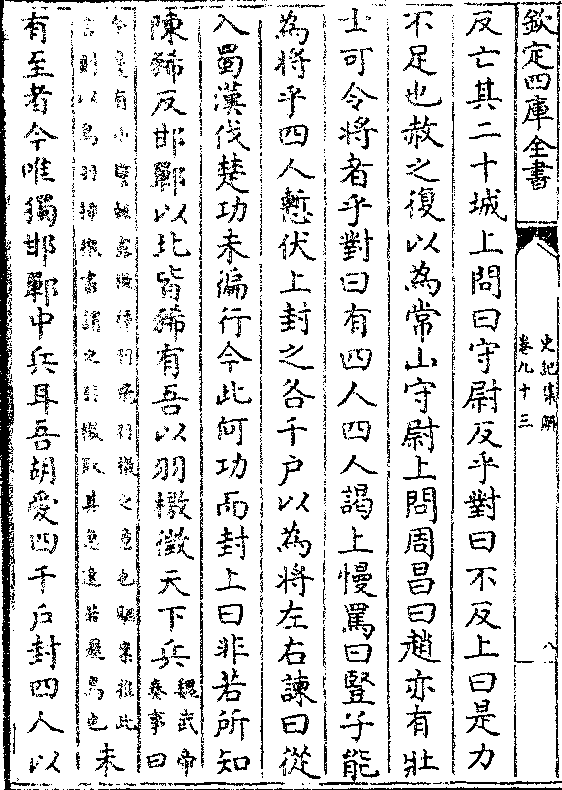 欽定四庫全書
史記集解
卷九十三
八
反亡其二十城上問曰守尉反乎對曰不反上曰是力
不足也赦之復以為常山守尉上問周昌曰趙亦有壯
士可令將者乎對曰有四人四人謁上慢罵曰豎子能
為將乎四人慙伏上封之各千户以為將左右諫曰從
入蜀漢伐楚功未徧行今此何功而封上曰非若所知
陳豨反邯鄲以北皆豨有吾以羽檄徵天下兵魏武帝奏事曰
今邊有小警輒露檄插羽飛羽檄之意也駰案推此
言則以鳥羽插檄書謂之羽檄取其急速若飛鳥也未
有至者今唯獨邯鄲中兵耳吾胡愛四千户封四人以